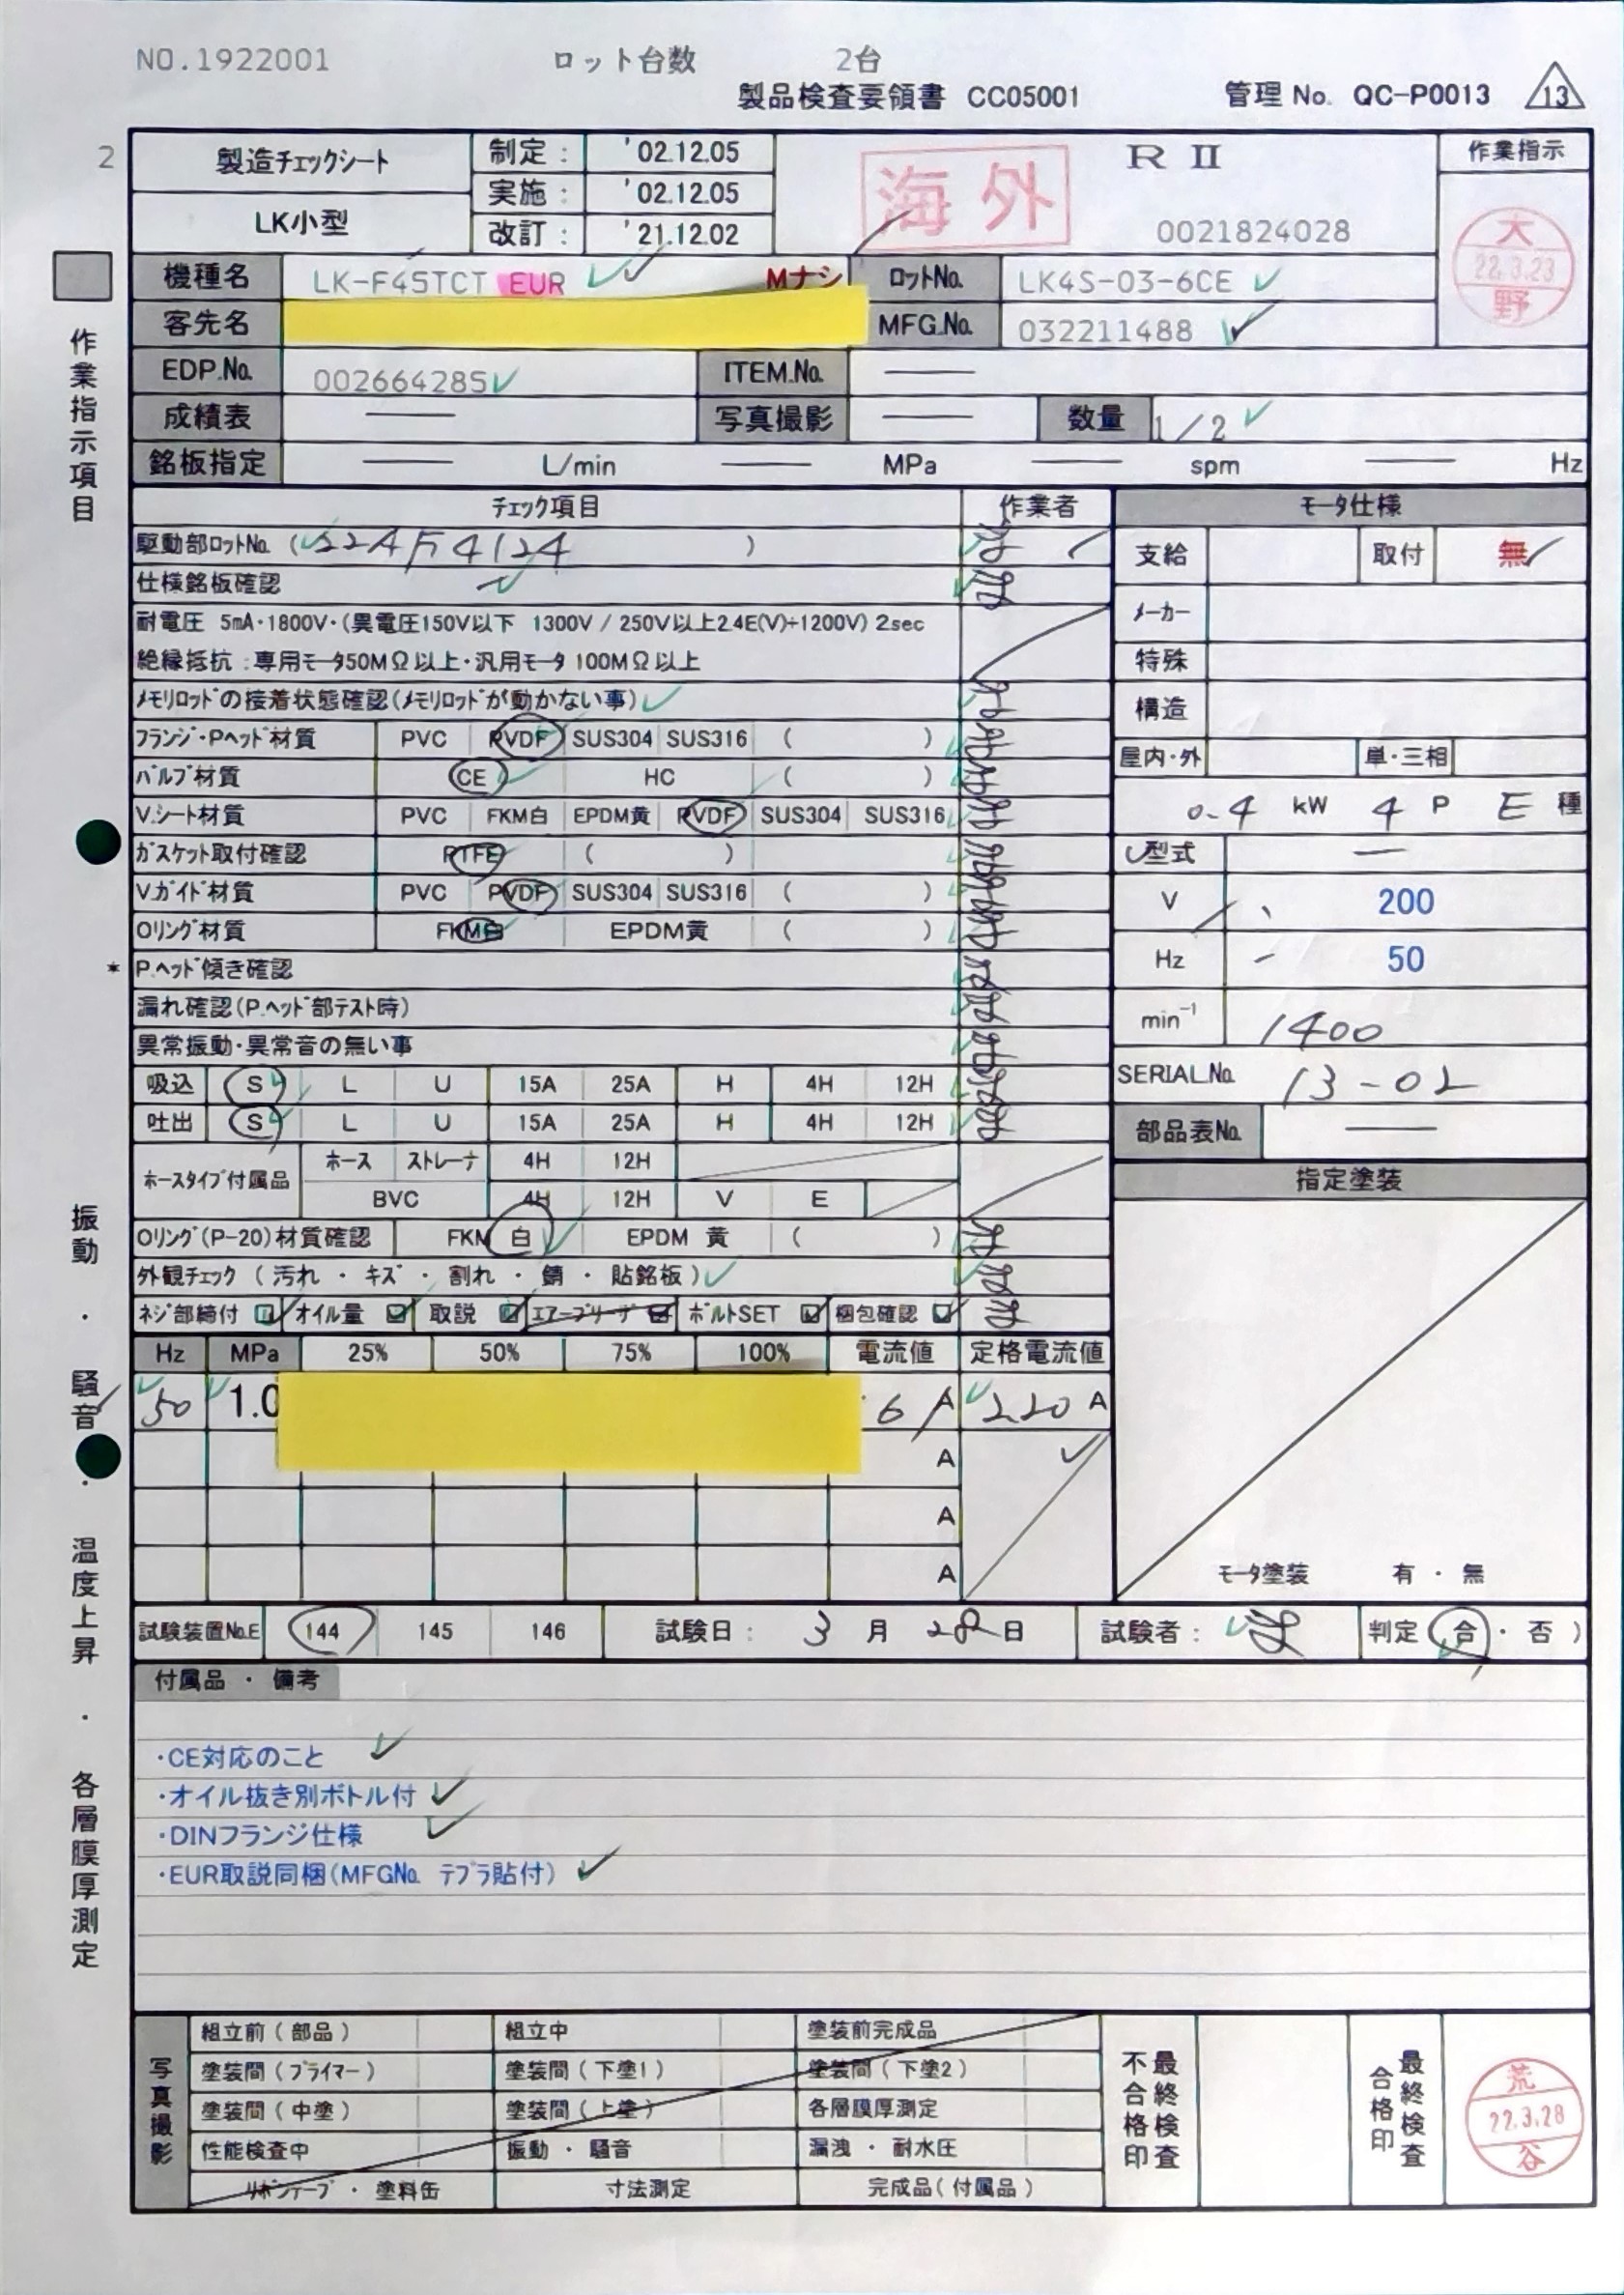 NO.1922001 ロット台数 2台
製品検査要領書 CC05001 管理 No. QC-P0013 13
2
製造チェックシート 制定: '02.12.05 海外 R II 作業指示
実施: '02.12.05
LK小型 改訂: '21.12.02 0021824028
大 22.3.23 野
機種名 LK-F45TCT EUR Mナシ ロットNo. LK4S-03-6CE
客先名 MFG.No. 032211488
EDP.No. 002664285 ITEM.No. ——
成績表 —— 写真撮影 —— 数量 1/2
銘板指定 —— L/min —— MPa —— spm —— Hz
作業指示項目
振動・騒音・温度上昇・各層膜厚測定
チェック項目 作業者
駆動部ロットNo. ( )
仕様銘板確認
耐電圧 5mA・1800V・(異電圧150V以下 1300V / 250V以上2.4E(V)+1200V) 2sec
絶縁抵抗:専用モータ50MΩ以上・汎用モータ 100MΩ以上
メモリロッドの接着状態確認(メモリロッドが動かない事)
フランジ・Pヘッド材質 PVC PVDF SUS304 SUS316 ( )
バルブ材質 CE HC ( )
V.シート材質 PVC FKM白 EPDM黄 PVDF SUS304 SUS316
ガスケット取付確認 PTFE ( )
V.ガイド材質 PVC PVDF SUS304 SUS316 ( )
Oリング材質 FKM白 EPDM黄 ( )
* P.ヘッド傾き確認
漏れ確認(P.ヘッド部テスト時)
異常振動・異常音の無い事
吸込 S L U 15A 25A H 4H 12H
吐出 S L U 15A 25A H 4H 12H
ホースタイプ付属品 ホース ストレーナ 4H 12H
BVC 4H 12H V E
Oリング(P-20)材質確認 FKM 白 EPDM 黄 ( )
外観チェック ( 汚れ ・ キズ ・ 割れ ・ 錆 ・ 貼銘板 )
ネジ部締付 オイル量 取説 エアーブリーザ ボルトSET 梱包確認
Hz MPa 25% 50% 75% 100% 電流値 定格電流値
50 1.0 6 A 2.20 A
A
A
A
モータ仕様
支給 取付 無
メーカー
特殊
構造
屋内・外 単・三相
0.4 kW 4 P E 種
型式 —
V 200
Hz 50
min⁻¹ 1400
SERIAL.No. 13-02
部品表No. ——
指定塗装
モータ塗装 有 ・ 無
試験装置No.E 144 145 146 試験日: 3 月 28 日 試験者: 判定( 合 ・ 否 )
付属品 ・ 備考
・CE対応のこと
・オイル抜き別ボトル付
・DINフランジ仕様
・EUR取説同梱(MFGNo. テプラ貼付)
写真撮影
組立前(部品) 組立中 塗装前完成品
塗装間(プライマー) 塗装間(下塗1) 塗装間(下塗2)
塗装間(中塗) 塗装間(上塗) 各層膜厚測定
性能検査中 振動 ・ 騒音 漏洩 ・ 耐水圧
リボンテープ ・ 塗料缶 寸法測定 完成品(付属品)
最終検査不合格印
最終検査合格印
荒 22.3.28 谷